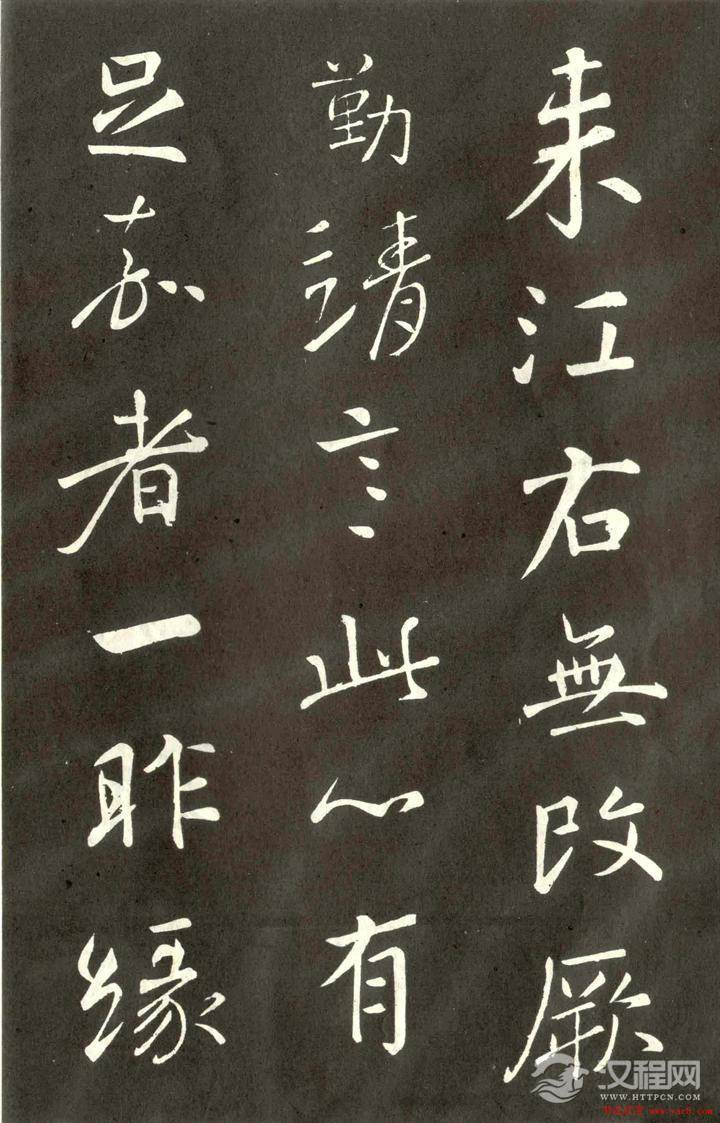 来江右無改厥
勤靖言此心有
足嘉者一昨緣
汉程网
WWW.HTTPCN.COM